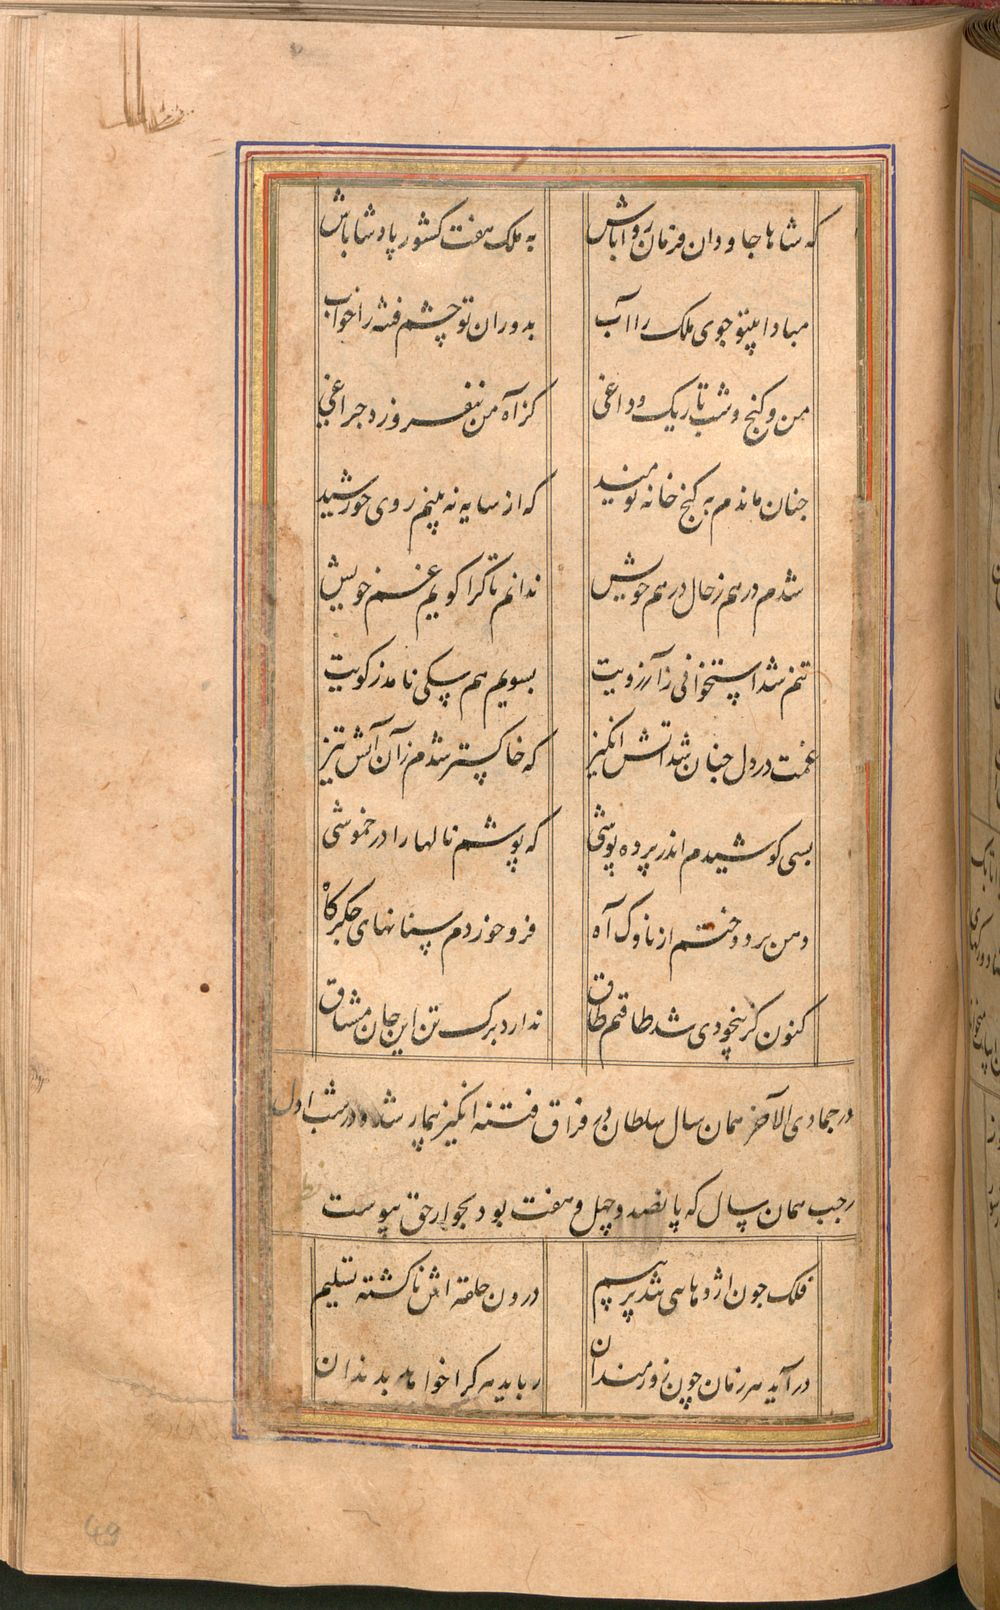 که شاها جاودان فرمان روا باش به ملک هفت کشور پادشا باش
مبادا بیتو جوی ملک را آب بدوران تو چشم فتنه را خواب
من و کنج و شب تاریک و داغی کز آه من نیفروزد چراغی
چنان ماندم به کنج خانه نومید که از سایه نه بینم روی خورشید
شدم درهم ز حال درهم خویش ندانم تا کرا گویم غم خویش
تنم شد استخوانی ز آرزویت بسویم هم سکی نامد ز کویت
غمت در دل چنان شد آتش انگیز که خاکستر شدم زان آتش تیز
بسی کوشیدم اندر پرده پوشی که پوشم نالها را در خموشی
دهن بر دوختم از ناوک آه فرو خوردم سنانهای جگرکاه
کنون کز بیخودی شد طاقتم طاق ندارد برک تن این جان مشتاق
در جمادی الآخر همان سال سلطان در فراق فتنه انگیز بیمار شده در شب اول
رجب همان سال که پانصد و چهل و هفت بود بجوار حق پیوست
فلک چون اژدهاسی شد پر سیم درون حلقه اش ناکشته تسلیم
در آید هر زمان چون زورمندان رباید هر کرا خواهد بدندان
49